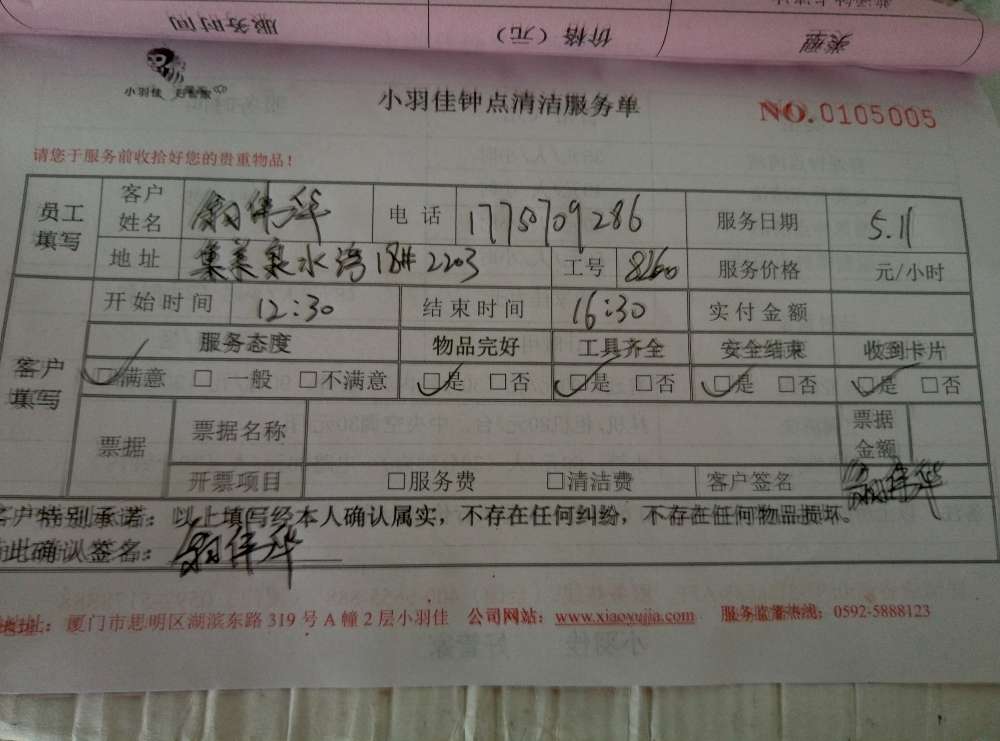 服务时间 价格（元） 类型
小羽佳 好管家
小羽佳钟点清洁服务单
NO.0105005
请您于服务前收拾好您的贵重物品！
员工填写 客户姓名 翁伟华 电话 17750709286 服务日期 5.11
地址 集美泉水湾18#2203 工号 8260 服务价格 元/小时
开始时间 12:30 结束时间 16:30 实付金额
客户填写 服务态度 物品完好 工具齐全 安全结束 收到卡片
☑满意 □一般 □不满意 ☑是 □否 ☑是 □否 ☑是 □否 ☑是 □否
票据 票据名称 票据金额
开票项目 □服务费 □清洁费 客户签名 翁伟华
客户特别承诺：以上填写经本人确认属实，不存在任何纠纷，不存在任何物品损坏。
此确认签名：翁伟华
地址：厦门市思明区湖滨东路 319 号 A 幢 2 层小羽佳 公司网站：www.xiaoyujia.com 服务监督热线：0592-5888123